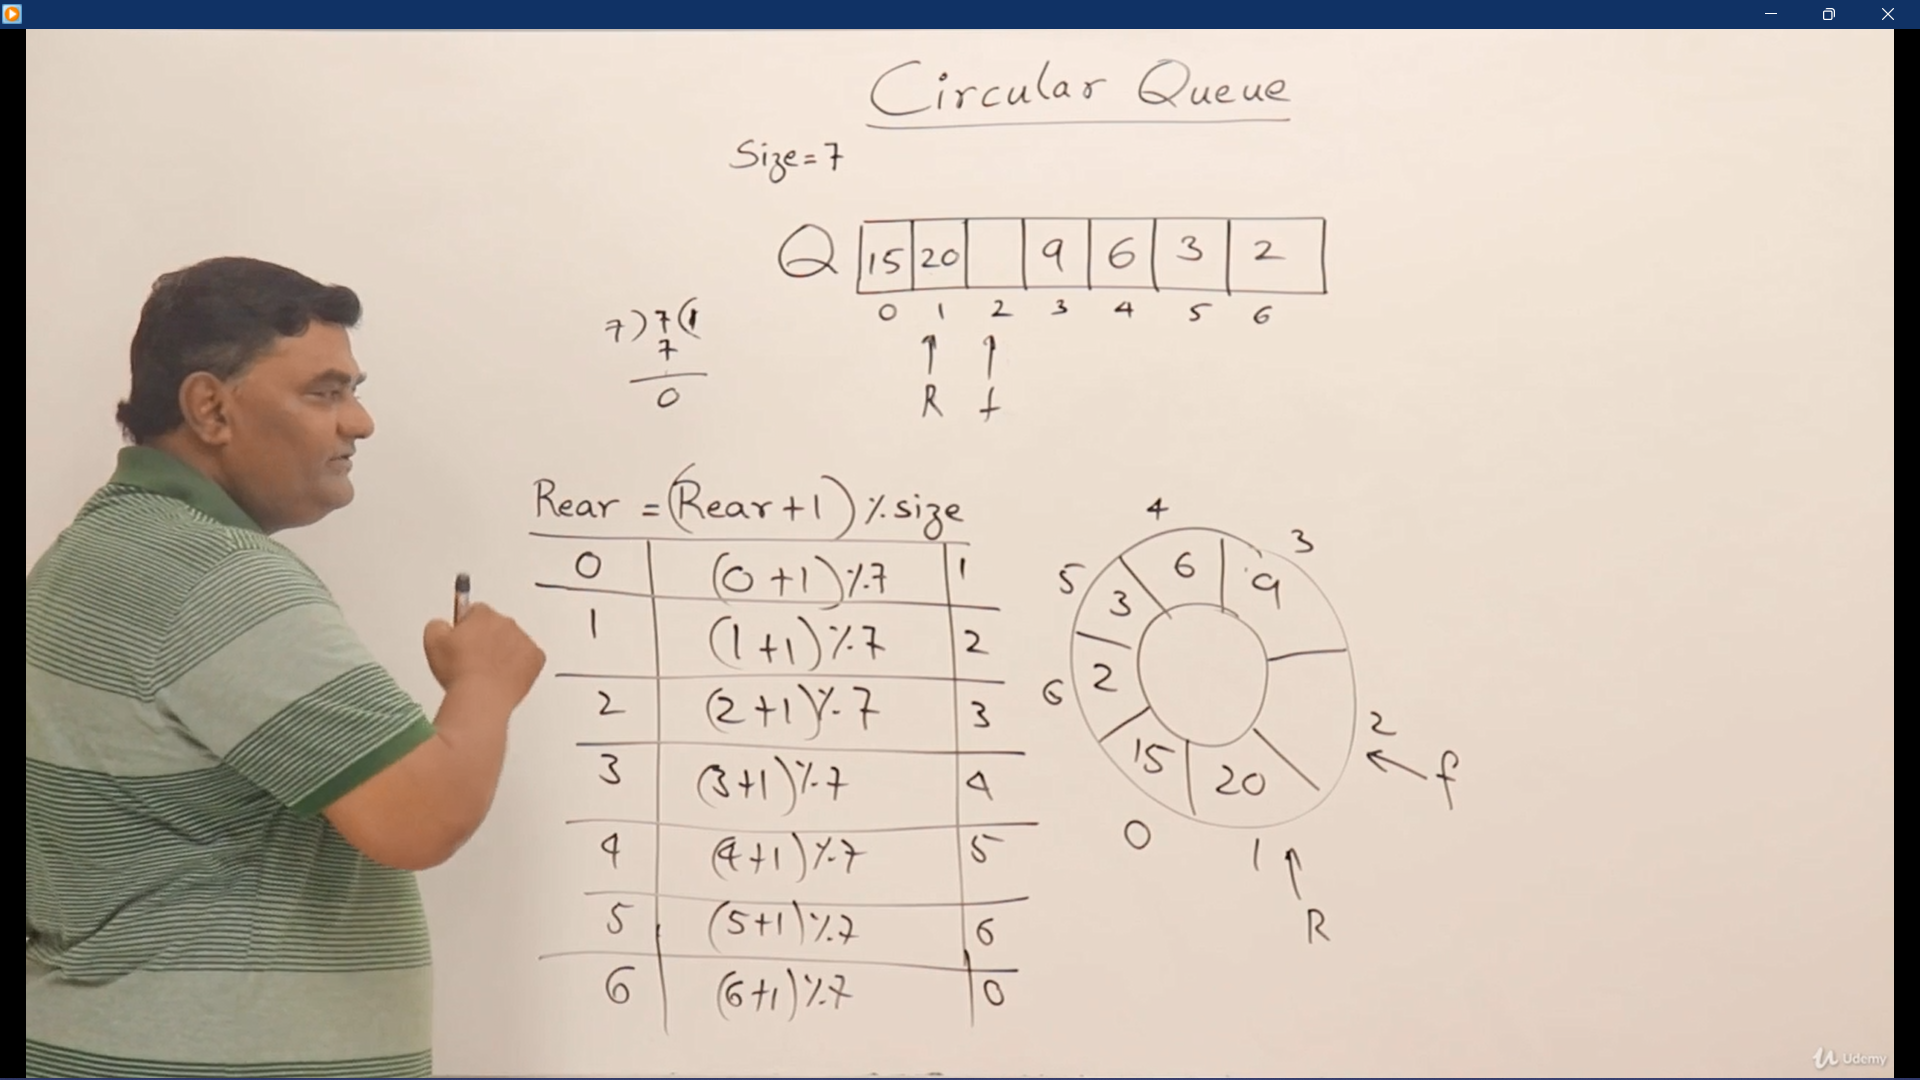 Circular Queue
Size=7
Q 15 20 9 6 3 2
0 1 2 3 4 5 6
R f
7)7(1
7
0
Rear =(Rear+1)%size
0 (0+1)%7 1
1 (1+1)%7 2
2 (2+1)%7 3
3 (3+1)%7 4
4 (4+1)%7 5
5 (5+1)%7 6
6 (6+1)%7 0
4 3
5 6 9
3
6 2 2
f
15 20
0 1
R
Udemy